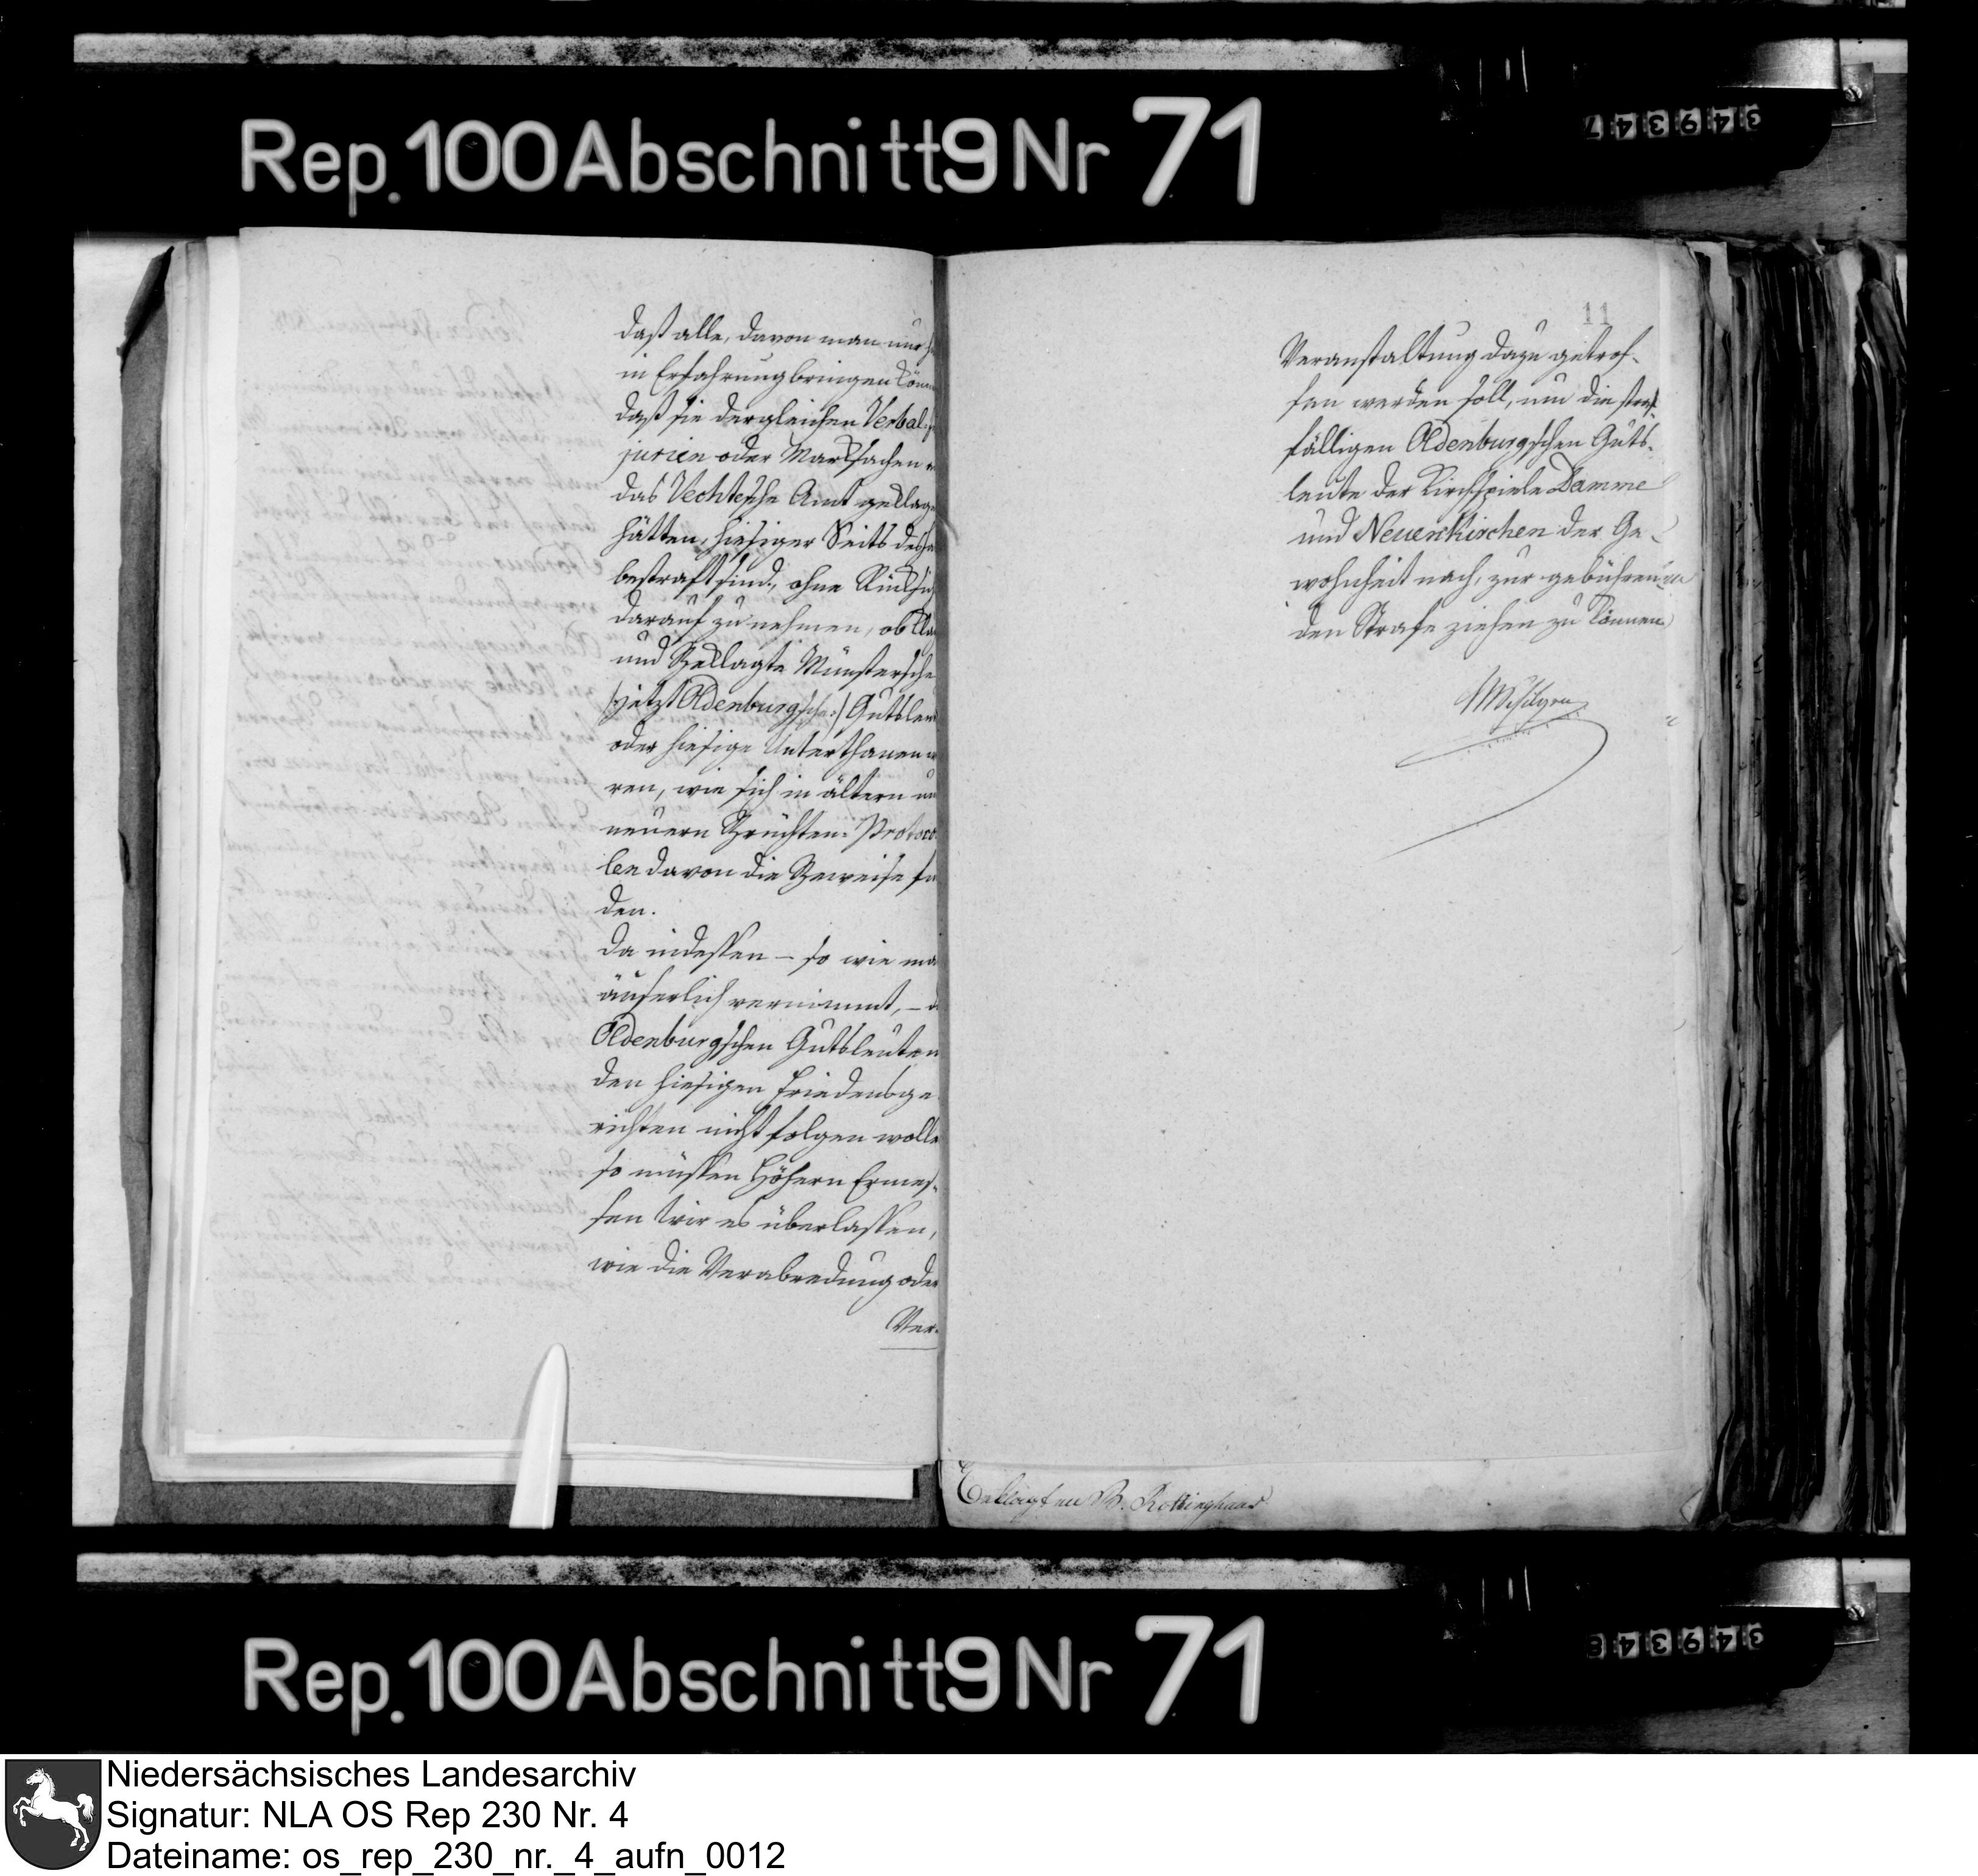 Rep. 100 Abschnitt 9 Nr 71
349347
daß alle, davon man nur
in Erfahrung bringen könn
daß sie dergleichen Verbal-
jurien oder Marksachen
das Vechtesche Amt geklagt
hätten, hiesiger Seits desha
bestraft sind, ohne Rücksich
darauf zu nehmen, ob Kla
und Beklagte Münstersche
/:jetzt Oldenburgsche:/ Gutsleu
oder hiesige Unterthanen wa
ren, wie sich in ältern un
neuern Brüchten-Protocol
len davon die Beweise fin
den.
Da indessen – so wie ma
äuserlich vernimmt, – d
Oldenburgschen Gutsleuten
den hiesigen Friedensge
richten nicht folgen wolle
so müssen Höhern Ermes-
sen wir es überlassen,
wie die Verabredung oder
Ver-
11
Veranstaltung dazu getrof-
fen werden soll, um die straf-
fälligen Oldenburgschen Guts-
leute der Kirchspiele Damme
und Neuenkirchen der Ge-
wohnheit nach, zur gebühren-
den Strafe ziehen zu können
Beklagten B. Rottinghaus
Rep. 100 Abschnitt 9 Nr 71
349348
Niedersächsisches Landesarchiv
Signatur: NLA OS Rep 230 Nr. 4
Dateiname: os_rep_230_nr._4_aufn_0012